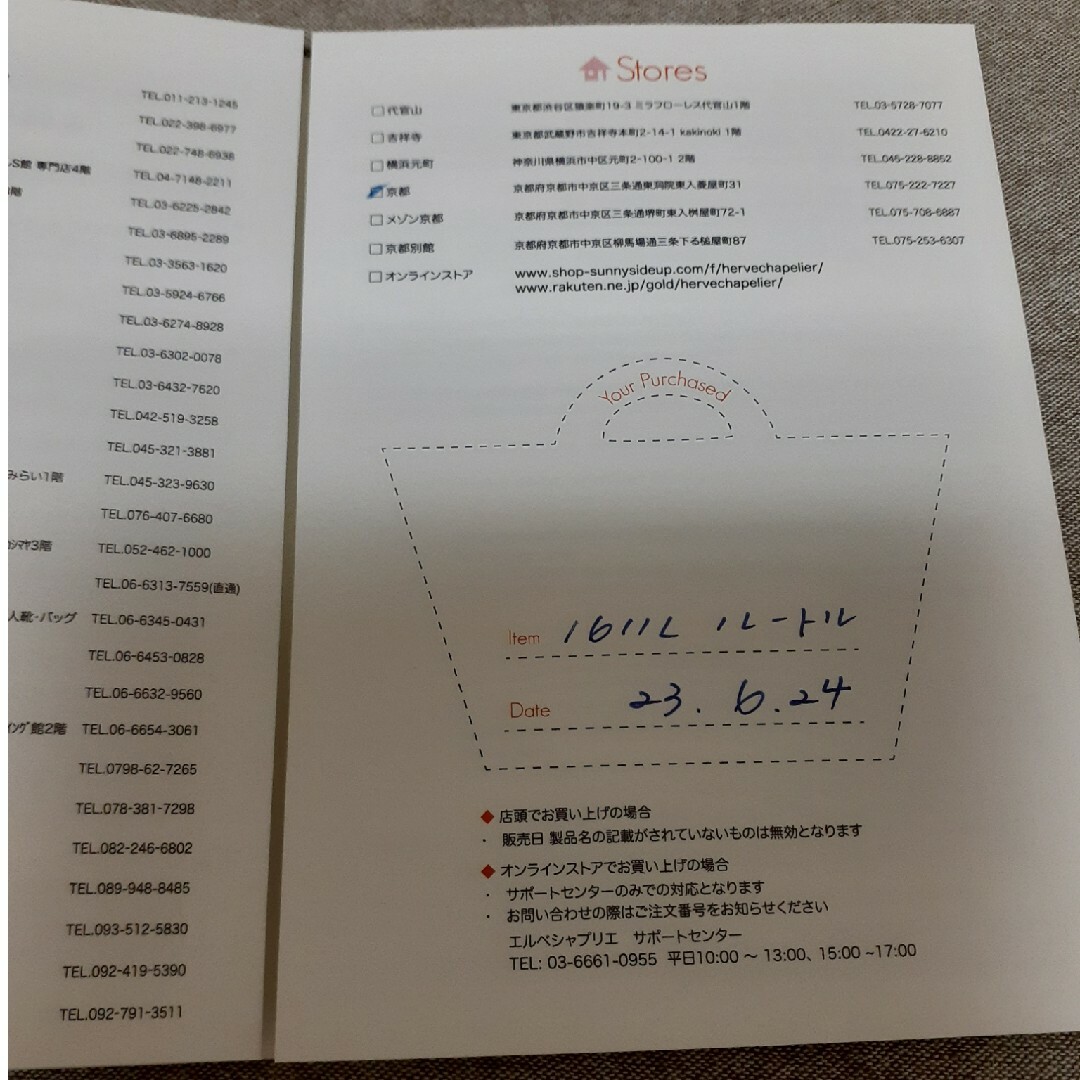 TEL.011-213-1245
TEL.022-398-6977
TEL.022-748-6938
館 専門店4階 TEL.04-7148-2211
階 TEL.03-6225-2842
TEL.03-6895-2289
TEL.03-3563-1620
TEL.03-5924-6766
TEL.03-6274-8928
TEL.03-6302-0078
TEL.03-6432-7620
TEL.042-519-3258
TEL.045-321-3881
みらい1階 TEL.045-323-9630
TEL.076-407-6680
シマヤ3階 TEL.052-462-1000
TEL.06-6313-7559(直通)
人靴・バッグ TEL.06-6345-0431
TEL.06-6453-0828
TEL.06-6632-9560
館2階 TEL.06-6654-3061
TEL.0798-62-7265
TEL.078-381-7298
TEL.082-246-6802
TEL.089-948-8485
TEL.093-512-5830
TEL.092-419-5390
TEL.092-791-3511
Stores
代官山 東京都渋谷区猿楽町19-3 ミラフローレス代官山1階 TEL.03-5728-7077
吉祥寺 東京都武蔵野市吉祥寺本町2-14-1 kakinoki 1階 TEL.0422-27-6210
横浜元町 神奈川県横浜市中区元町2-100-1 2階 TEL.045-228-8852
京都 京都府京都市中京区三条通東洞院東入菱屋町31 TEL.075-222-7227
メゾン京都 京都府京都市中京区三条通堺町東入桝屋町72-1 TEL.075-708-6887
京都別館 京都府京都市中京区柳馬場通三条下る槌屋町87 TEL.075-253-6307
オンラインストア www.shop-sunnysideup.com/f/hervechapelier/
www.rakuten.ne.jp/gold/hervechapelier/
Your Purchased
Item 1611L ルートル
Date 23.6.24
◆ 店頭でお買い上げの場合
・ 販売日 製品名の記載がされていないものは無効となります
◆ オンラインストアでお買い上げの場合
・ サポートセンターのみでの対応となります
・ お問い合わせの際はご注文番号をお知らせください
エルベシャプリエ サポートセンター
TEL: 03-6661-0955 平日10:00 ～ 13:00、15:00 ~17:00